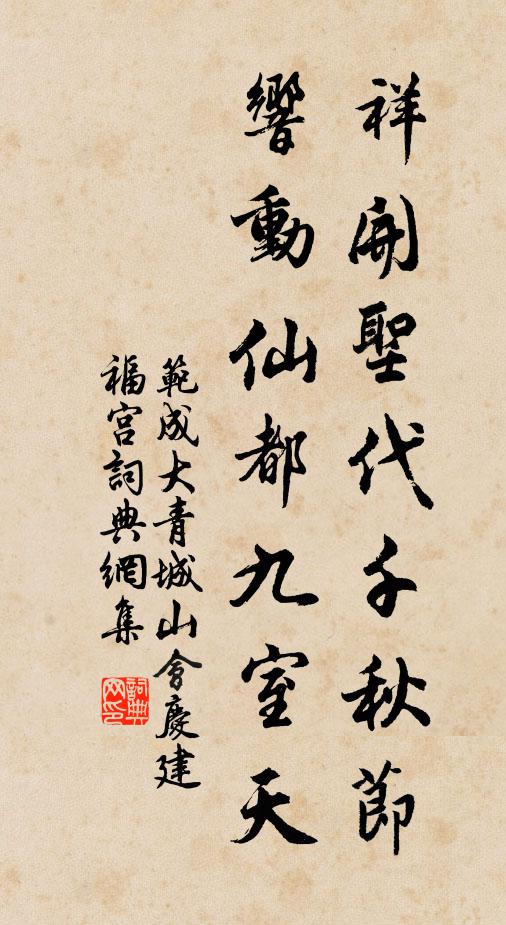 祥開聖代千秋節
響動仙都九室天
範成大青城山會慶建
福宮詞典網集
詞典
网印